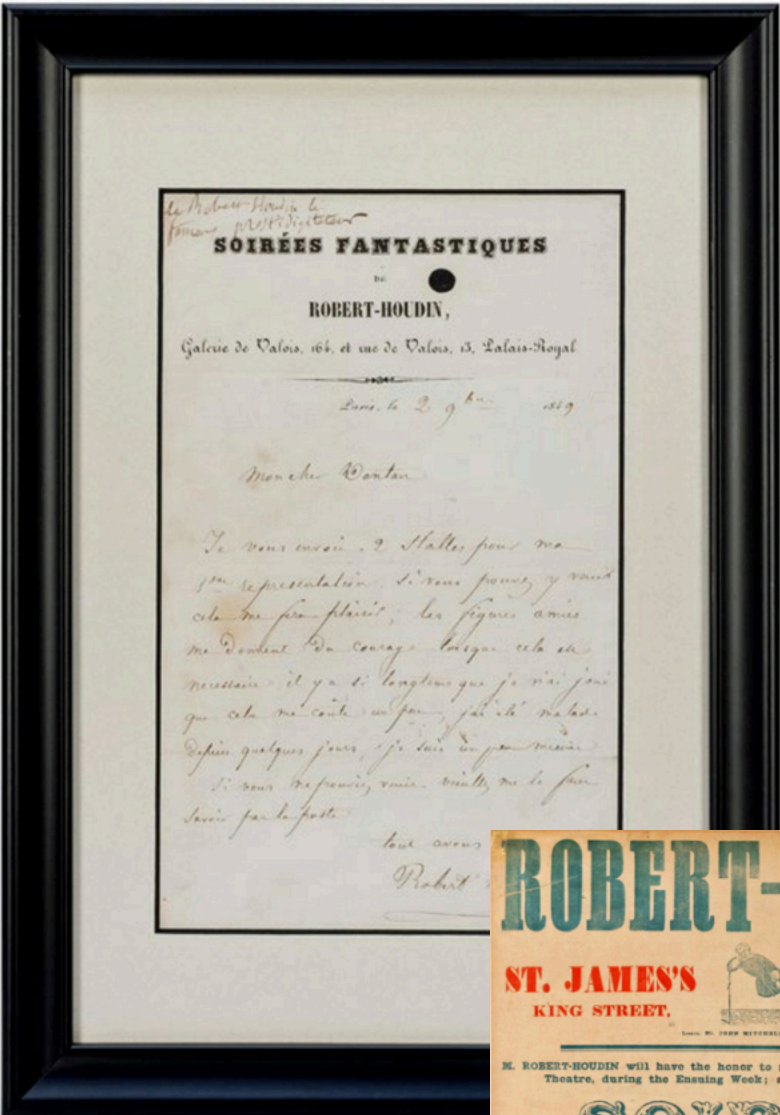 de Robert Houdin le
fameux prestidigitateur
SOIRÉES FANTASTIQUES
DE
ROBERT-HOUDIN,
Galerie de Valois, 164, et rue de Valois, 13, Palais-Royal
Paris, le 2 9bre 1849
Mon cher Dantan
Je vous envoie 2 Stalles pour ma
1ere representation, si vous pouvez y venir
cela me fera plaisir, les figures amies
me donnent du courage lorsque cela est
necessaire il y a si longtems que je n'ai joué
que cela me coûte un peu, j'ai été malade
depuis quelques jours, je suis un peu mieux
Si vous ne pouviez venir veuillez me le faire
savoir par la poste
tout avous
Robert
ROBERT-
ST. JAMES'S
KING STREET,
Lessee, Mr. JOHN MITCHELL
M. ROBERT-HOUDIN will have the honor to
Theatre, during the Ensuing Week;